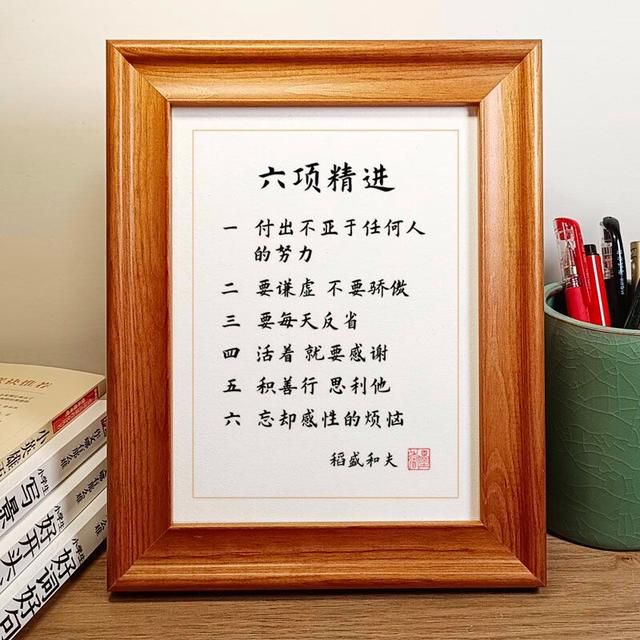 六项精进
一 付出不亚于任何人
的努力
二 要谦虚 不要骄傲
三 要每天反省
四 活着 就要感谢
五 积善行 思利他
六 忘却感性的烦恼
稻盛和夫
小英雄
小学生
写景
小学生
好开头
小学生
好词好句